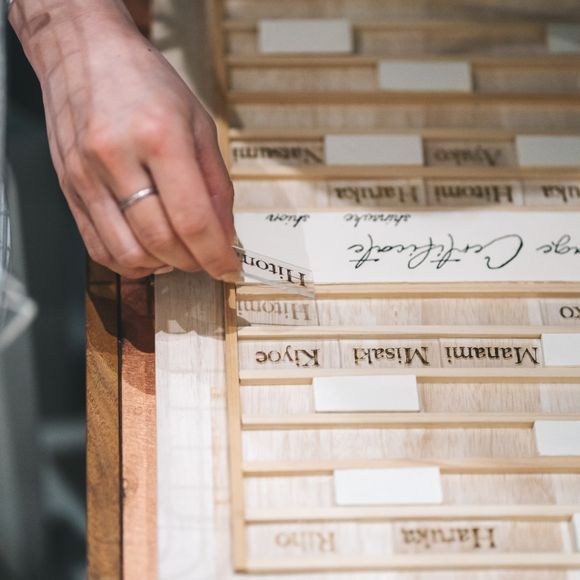 Haruka Riho
Manami Misaki Kiyoe
ko Hitomi
Hitomi
age Certificate
shinsuke shion
uka Hitomi Haruka
Ayako Natsumi